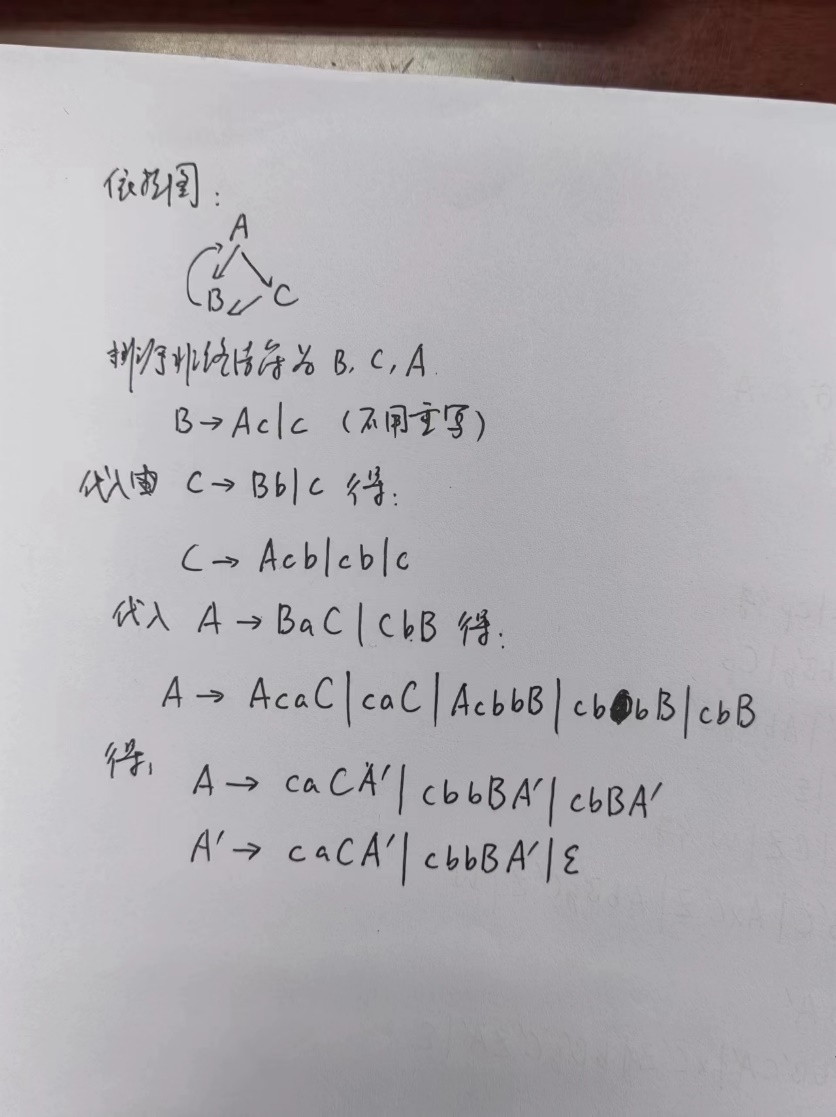 依赖图:
A
B C
排序非终结符为 B, C, A.
B → Ac|c (不用重写)
代入 C → Bb|c 得:
C → Acb|cb|c
代入 A → BaC|CbB 得:
A → AcaC|caC|AcbbB|cbbB|cbB
得,
A → caCA′|cbbBA′|cbBA′
A′ → caCA′|cbbBA′|ε